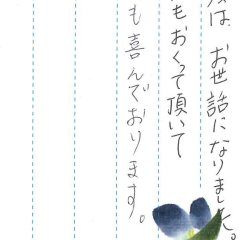 は、お世話になりました。
もおくって頂いて
も喜んでおります。